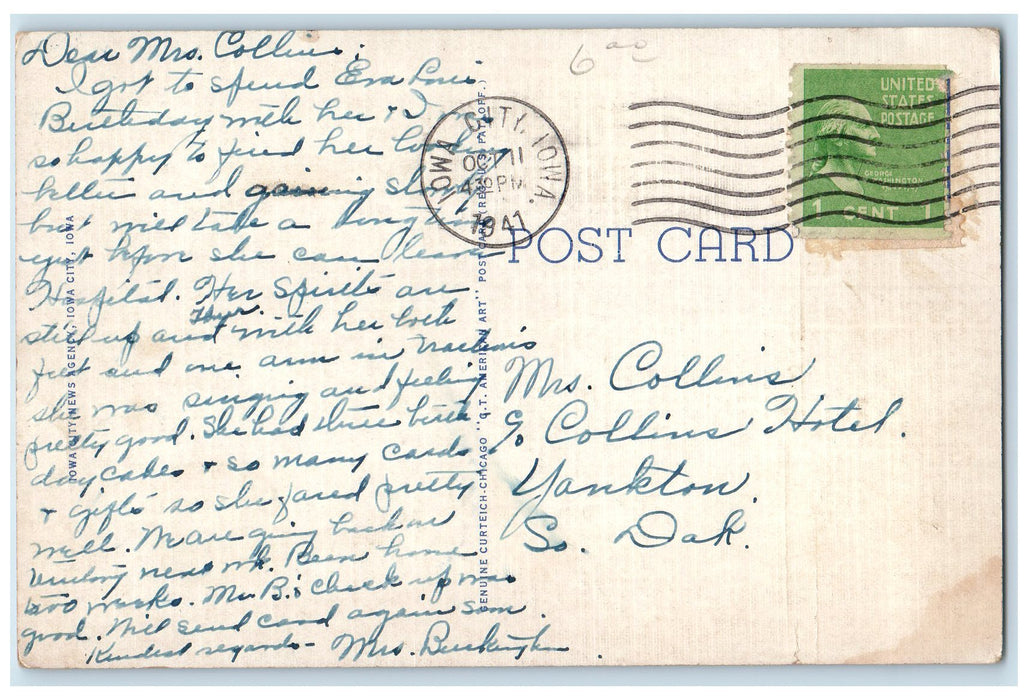 Dear Mrs. Collins:
I got to spend Eva Lou's
Birthday with her & I
so happy to find her looking
better and gaining slowly
but will take a long time
yet before she can leave
Hospital. Her Spirits are
still up and with her both
feet and one arm in tractions
she was singing and feeling
pretty good. She had three birth
day cakes & so many cards
& gifts so she fared pretty
well. We are going back on
next wk. Been home
two weeks. Mr. B.'s check up was
good. Will send card again soon.
Kindest regards - Mrs. Buckingham
IOWA CITY NEWS AGENCY, IOWA CITY, IOWA
GENUINE CURTEICH-CHICAGO "C.T. AMERICAN ART" POST CARD (REG. U.S. PAT. OFF.)
6 00
IOWA CITY, IOWA.
OCT 11
4 PM
1941
UNITED
STATES
POSTAGE
GEORGE
WASHINGTON
1 CENT 1
POST CARD
Mrs. Collins
c/o Collins Hotel.
Yankton.
So. Dak.